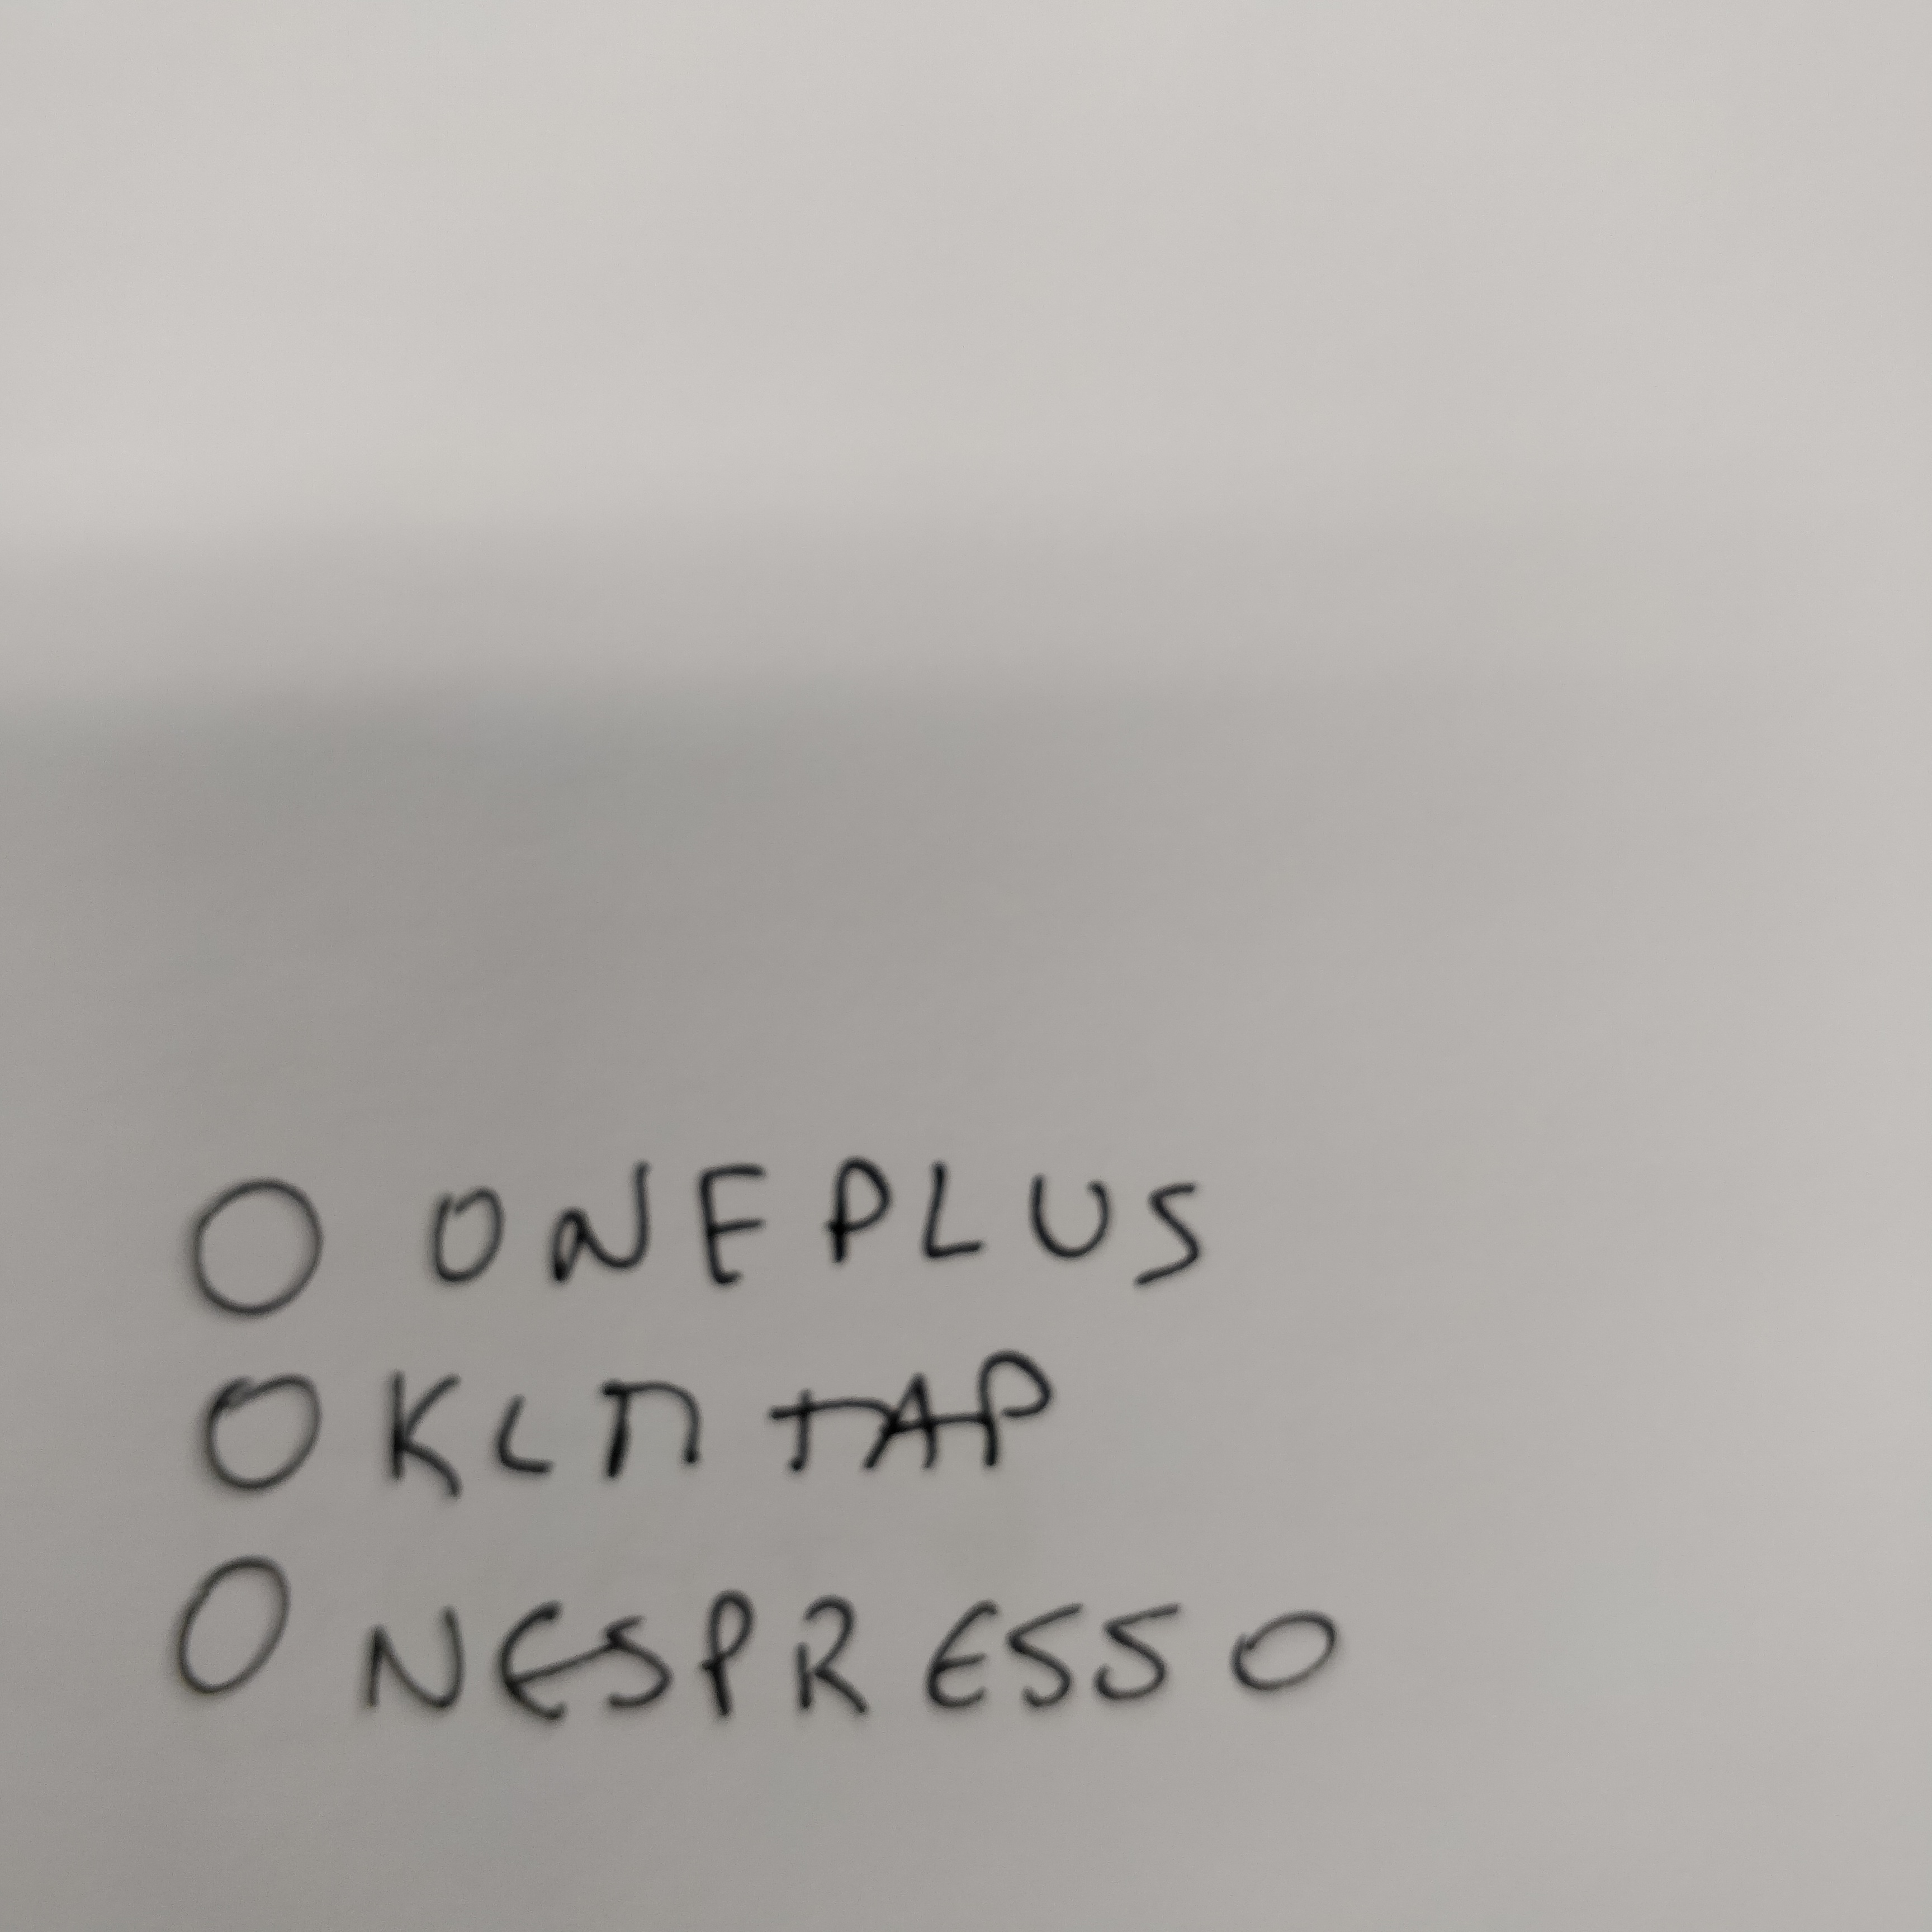 ONEPLUS
KLM TAP
NESPRESSO